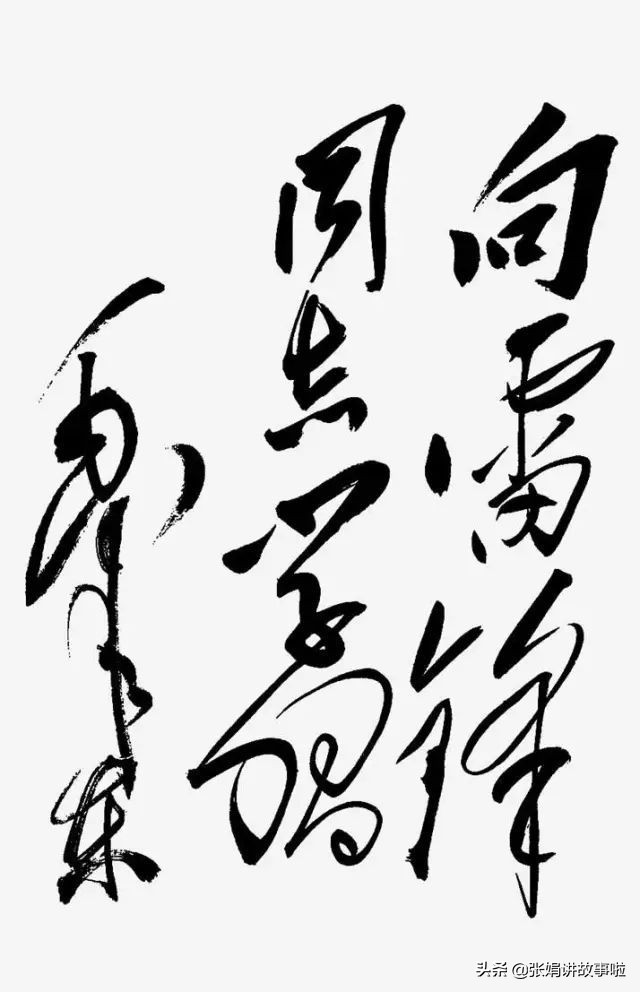 向雷锋
同志学习
毛泽东
头条 @张娟讲故事啦